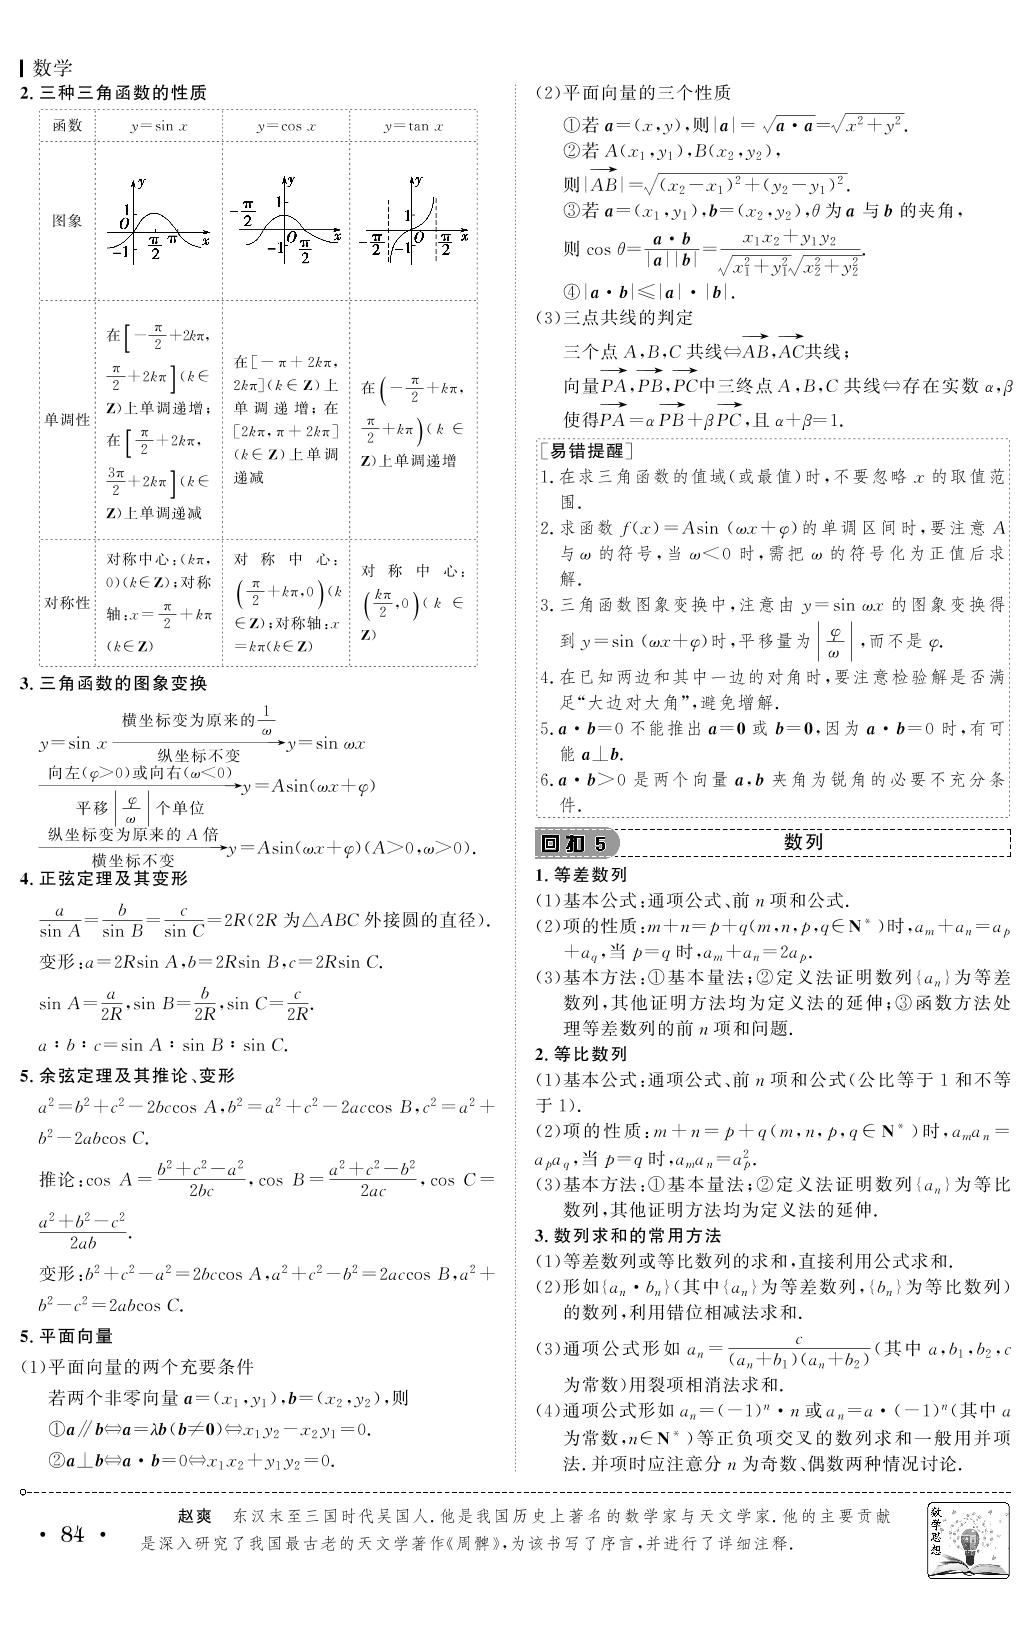 数学
2. 三种三角函数的性质
函数 y=sin x y=cos x y=tan x
图象
y 1 0 π/2 π x -1
-π/2 y 1 0 π/2 x -1
y 1 -π/2 0 π/2 x -1
单调性
在[-π/2+2kπ,
π/2+2kπ](k∈
Z)上单调递增;
在[π/2+2kπ,
3π/2+2kπ](k∈
Z)上单调递减
在[-π+2kπ,
2kπ](k∈Z)上
单调递增;在
[2kπ,π+2kπ]
(k∈Z)上单调
递减
在(-π/2+kπ,
π/2+kπ)(k∈
Z)上单调递增
对称性
对称中心:(kπ,
0)(k∈Z);对称
轴:x=π/2+kπ
(k∈Z)
对称中心:
(π/2+kπ,0)(k
∈Z);对称轴:x
=kπ(k∈Z)
对称中心:
(kπ/2,0)(k∈
Z)
3. 三角函数的图象变换
横坐标变为原来的1/ω
y=sin x → y=sin ωx
纵坐标不变
向左(φ>0)或向右(ω<0)
→ y=Asin(ωx+φ)
平移|φ/ω|个单位
纵坐标变为原来的 A 倍
→ y=Asin(ωx+φ)(A>0,ω>0).
横坐标不变
4. 正弦定理及其变形
a/sin A=b/sin B=c/sin C=2R(2R 为△ABC 外接圆的直径).
变形:a=2Rsin A,b=2Rsin B,c=2Rsin C.
sin A=a/2R,sin B=b/2R,sin C=c/2R.
a∶b∶c=sin A∶sin B∶sin C.
5. 余弦定理及其推论、变形
a²=b²+c²-2bccos A,b²=a²+c²-2accos B,c²=a²+
b²-2abcos C.
推论:cos A=(b²+c²-a²)/2bc,cos B=(a²+c²-b²)/2ac,cos C=
(a²+b²-c²)/2ab.
变形:b²+c²-a²=2bccos A,a²+c²-b²=2accos B,a²+
b²-c²=2abcos C.
5. 平面向量
(1)平面向量的两个充要条件
若两个非零向量 a=(x₁,y₁),b=(x₂,y₂),则
①a∥b⇔a=λb(b≠0)⇔x₁y₂-x₂y₁=0.
②a⊥b⇔a·b=0⇔x₁x₂+y₁y₂=0.
(2)平面向量的三个性质
①若 a=(x,y),则|a|=√(a·a)=√(x²+y²).
②若 A(x₁,y₁),B(x₂,y₂),
则|AB→|=√((x₂-x₁)²+(y₂-y₁)²).
③若 a=(x₁,y₁),b=(x₂,y₂),θ 为 a 与 b 的夹角,
则 cos θ=a·b/|a||b|=(x₁x₂+y₁y₂)/(√(x₁²+y₁²)√(x₂²+y₂²)).
④|a·b|≤|a|·|b|.
(3)三点共线的判定
三个点 A,B,C 共线⇔AB→,AC→共线;
向量PA→,PB→,PC→中三终点 A,B,C 共线⇔存在实数 α,β
使得PA→=αPB→+βPC→,且 α+β=1.
[易错提醒]
1. 在求三角函数的值域(或最值)时,不要忽略 x 的取值范
围.
2. 求函数 f(x)=Asin (ωx+φ)的单调区间时,要注意 A
与 ω 的符号,当 ω<0 时,需把 ω 的符号化为正值后求
解.
3. 三角函数图象变换中,注意由 y=sin ωx 的图象变换得
到 y=sin (ωx+φ)时,平移量为|φ/ω|,而不是 φ.
4. 在已知两边和其中一边的对角时,要注意检验解是否满
足“大边对大角”,避免增解.
5. a·b=0 不能推出 a=0 或 b=0,因为 a·b=0 时,有可
能 a⊥b.
6. a·b>0 是两个向量 a,b 夹角为锐角的必要不充分条
件.
回扣 5 数列
1. 等差数列
(1)基本公式:通项公式、前 n 项和公式.
(2)项的性质:m+n=p+q(m,n,p,q∈N*)时,aₘ+aₙ=aₚ
+a_q,当 p=q 时,aₘ+aₙ=2aₚ.
(3)基本方法:①基本量法;②定义法证明数列{aₙ}为等差
数列,其他证明方法均为定义法的延伸;③函数方法处
理等差数列的前 n 项和问题.
2. 等比数列
(1)基本公式:通项公式、前 n 项和公式(公比等于 1 和不等
于 1).
(2)项的性质:m+n=p+q(m,n,p,q∈N*)时,aₘaₙ=
aₚa_q,当 p=q 时,aₘaₙ=aₚ².
(3)基本方法:①基本量法;②定义法证明数列{aₙ}为等比
数列,其他证明方法均为定义法的延伸.
3. 数列求和的常用方法
(1)等差数列或等比数列的求和,直接利用公式求和.
(2)形如{aₙ·bₙ}(其中{aₙ}为等差数列,{bₙ}为等比数列)
的数列,利用错位相减法求和.
(3)通项公式形如 aₙ=c/((an+b₁)(an+b₂))(其中 a,b₁,b₂,c
为常数)用裂项相消法求和.
(4)通项公式形如 aₙ=(-1)ⁿ·n 或 aₙ=a·(-1)ⁿ(其中 a
为常数,n∈N*)等正负项交叉的数列求和一般用并项
法.并项时应注意分 n 为奇数、偶数两种情况讨论.
· 84 ·
赵爽 东汉末至三国时代吴国人.他是我国历史上著名的数学家与天文学家.他的主要贡献
是深入研究了我国最古老的天文学著作《周髀》,为该书写了序言,并进行了详细注释.
数学思想